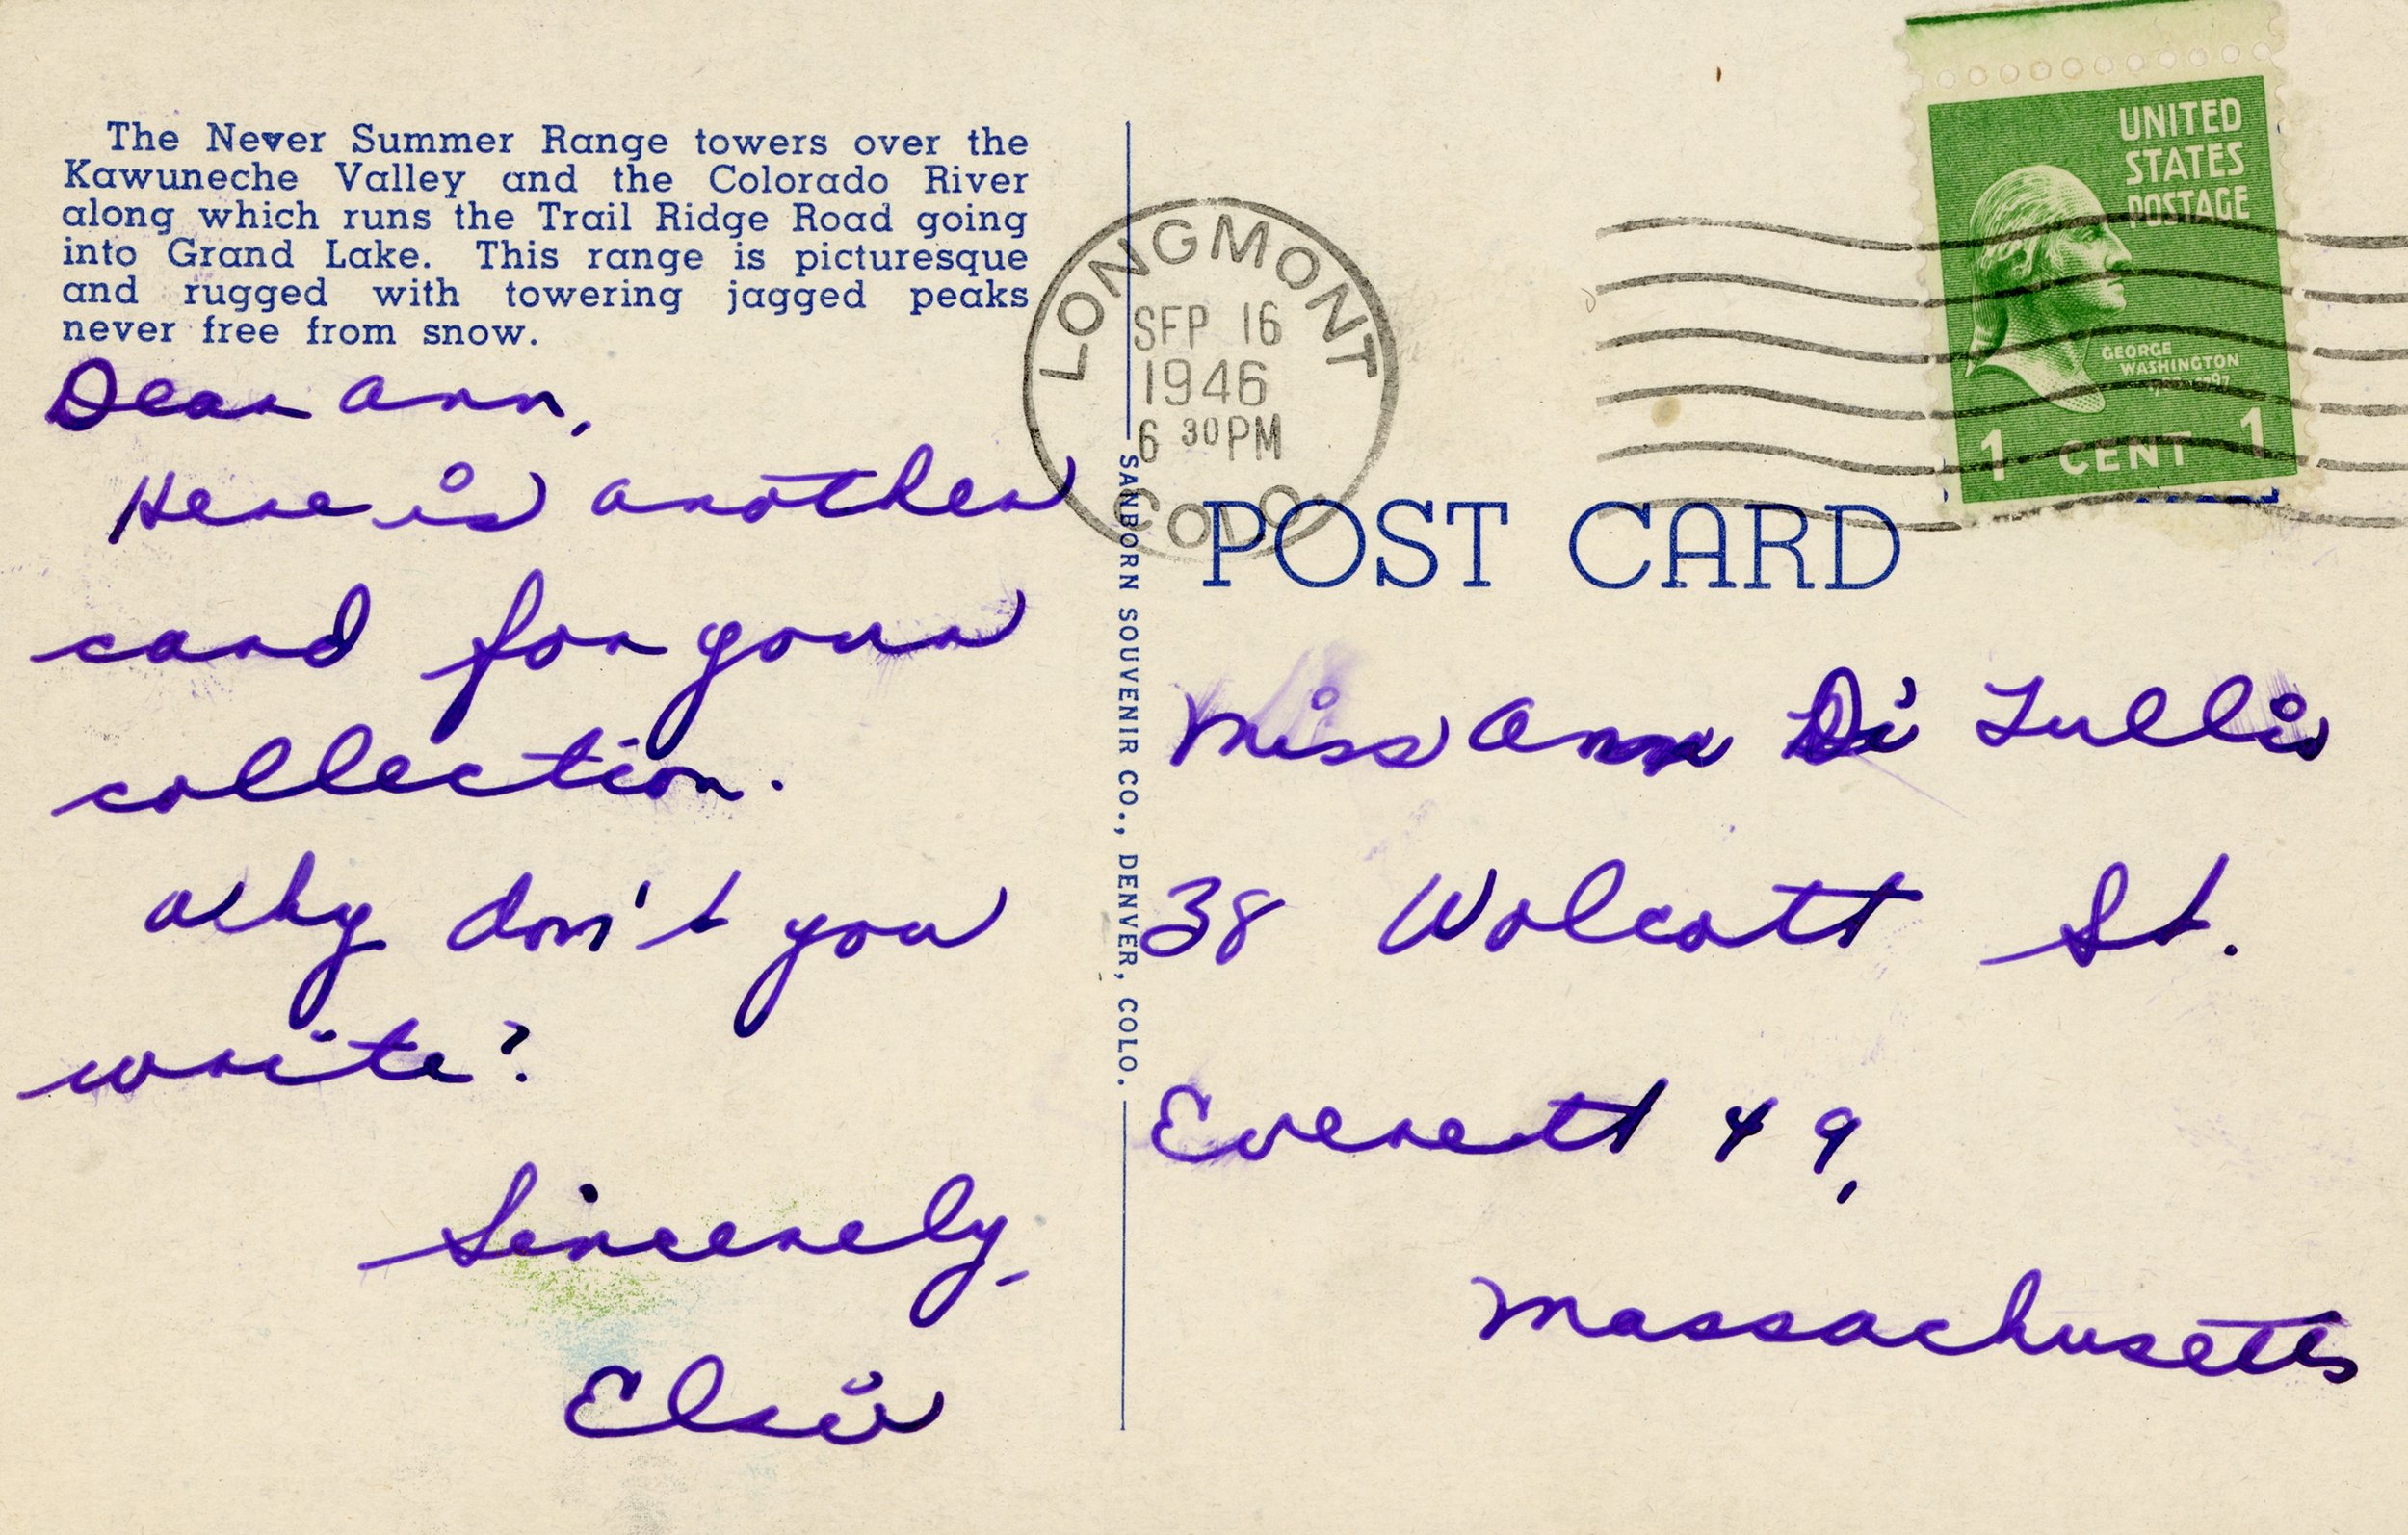 The Never Summer Range towers over the
Kawuneche Valley and the Colorado River
along which runs the Trail Ridge Road going
into Grand Lake. This range is picturesque
and rugged with towering jagged peaks
never free from snow.
Dear Ann,
Here is another
card for your
collection.
Why don't you
write?
Sincerely,
Elsie
SANBORN SOUVENIR CO., DENVER, COLO.
LONGMONT
SEP 16
1946
6 30 PM
COLO.
UNITED
STATES
POSTAGE
GEORGE
WASHINGTON
1 CENT 1
POST CARD
Miss Ann Di
38 Wolcott St.
Everett 49,
Massachusetts